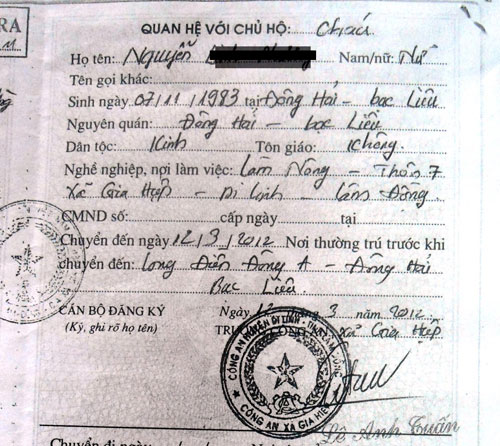 RA
QUAN HỆ VỚI CHỦ HỘ: Cháu
Họ tên: Nguyễn Nam/nữ: Nữ
Tên gọi khác:
Sinh ngày 07/11/1983 tại Đông Hải – bạc Liêu
Nguyên quán: Đông Hải – bạc Liêu
Dân tộc: Kinh Tôn giáo: không
Nghề nghiệp, nơi làm việc: Làm Nông – Thôn 7
xã Gia Hiệp – Di Linh – Lâm Đồng
CMND số: cấp ngày tại
Chuyển đến ngày 12/3/2012 Nơi thường trú trước khi
chuyển đến: Long Điền Đông A – Đông Hải
Bạc Liêu
CÁN BỘ ĐĂNG KÝ Ngày 12 tháng 3 năm 2012
(Ký, ghi rõ họ tên) xã Gia Hiệp
CÔNG AN HUYỆN DI LINH - T. LÂM ĐỒNG
CÔNG AN XÃ GIA HIỆP
Lê Anh Tuấn
Chuyển đi ngày